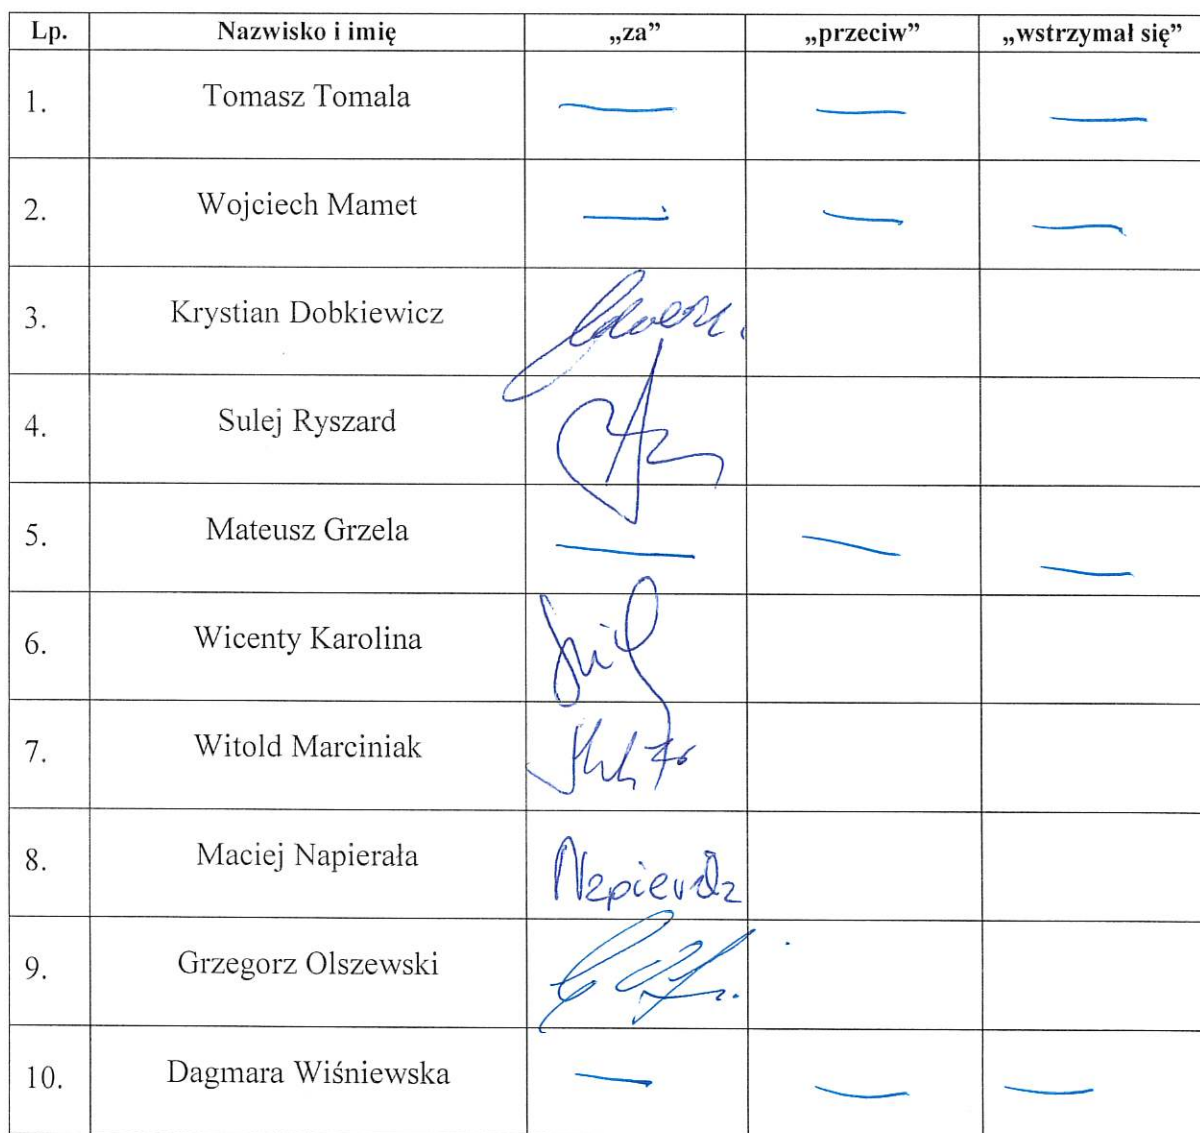 Lp. Nazwisko i imię „za” „przeciw” „wstrzymał się”
1. Tomasz Tomala — — —
2. Wojciech Mamet — — —
3. Krystian Dobkiewicz
4. Sulej Ryszard
5. Mateusz Grzela — — —
6. Wicenty Karolina
7. Witold Marciniak
8. Maciej Napierała Napierała
9. Grzegorz Olszewski
10. Dagmara Wiśniewska — — —